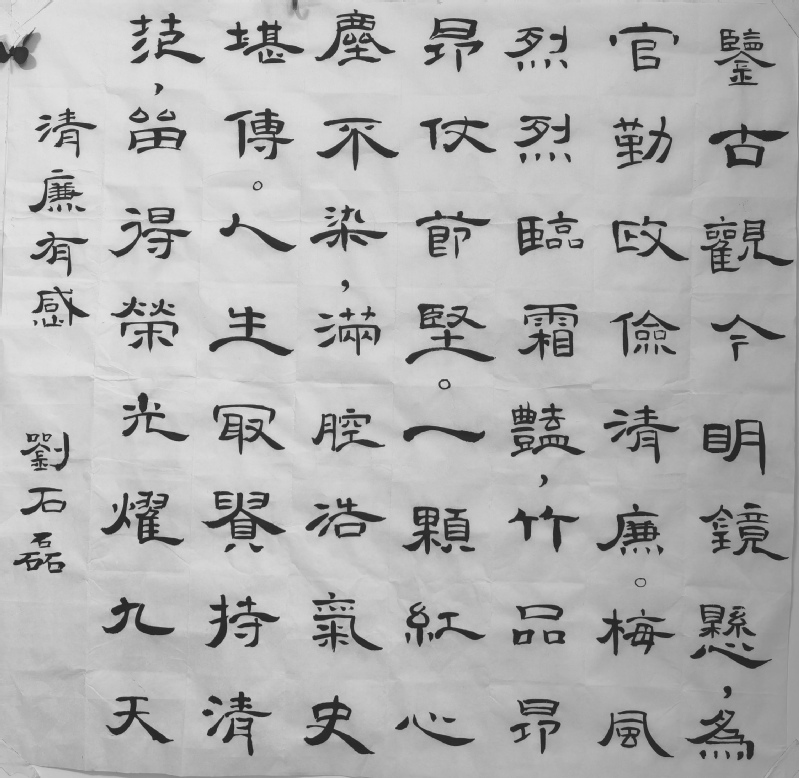 鑒古觀今明鏡懸，為
官勤政儉清廉。梅風
烈烈臨霜豔，竹品昂
昂仗節堅。一顆紅心
塵不染，滿腔浩氣史
堪傳。人生冣貴持清
范，留得榮光耀九天
清廉有感 劉石磊